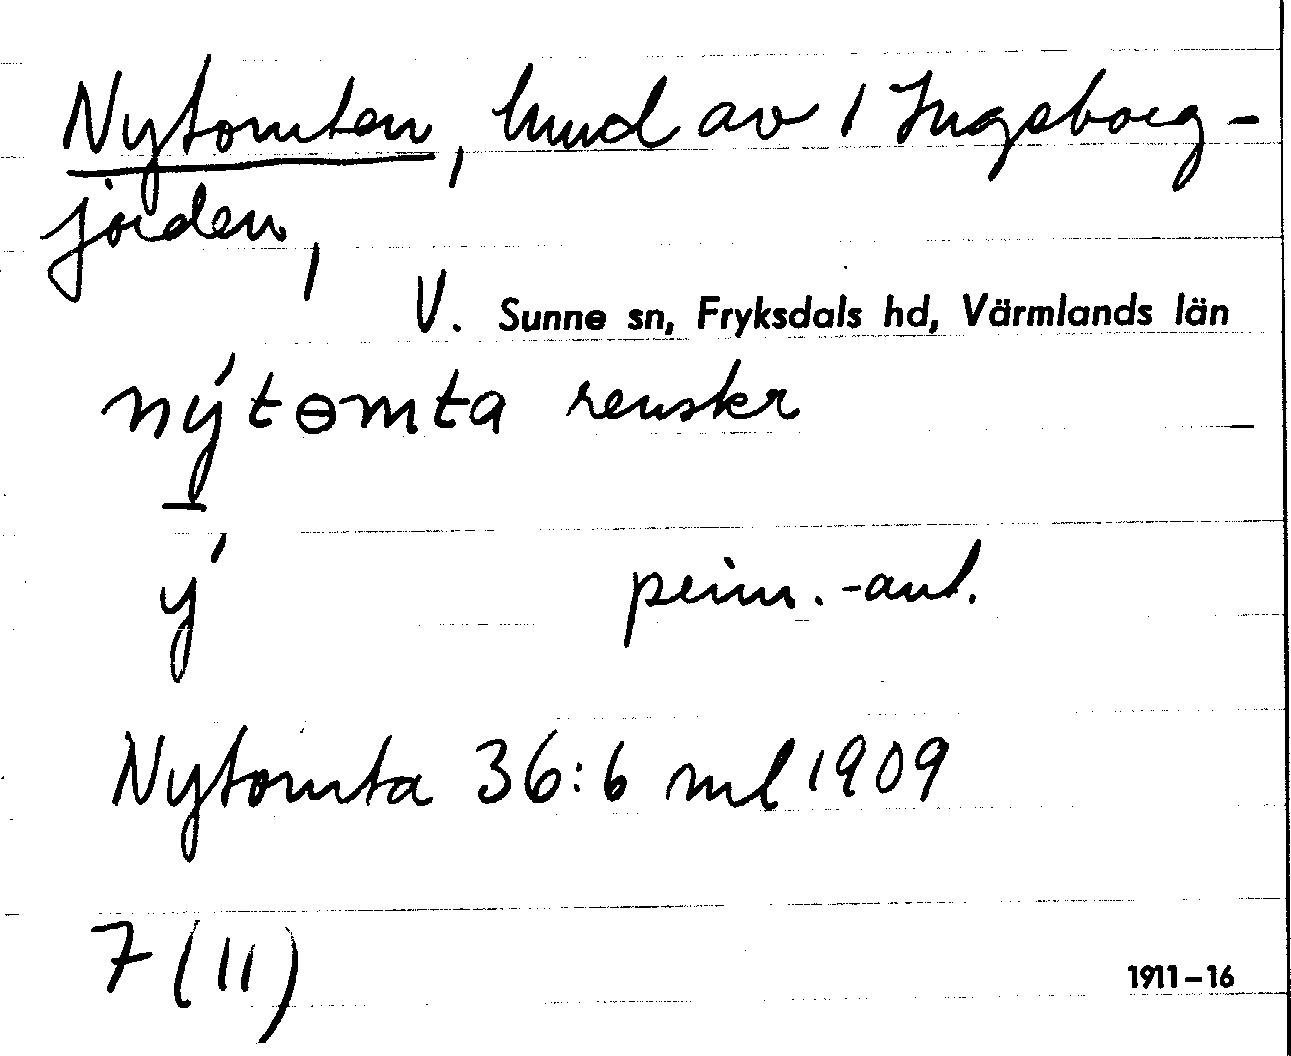 Nytomten, hmd av 1 Ingeborg-
jorden,
V. Sunne sn, Fryksdals hd, Värmlands län
nýtɵmta renskr
ý prim.-ant.
Nytomta 36:6 ml 1909
7 (11)
1911-16